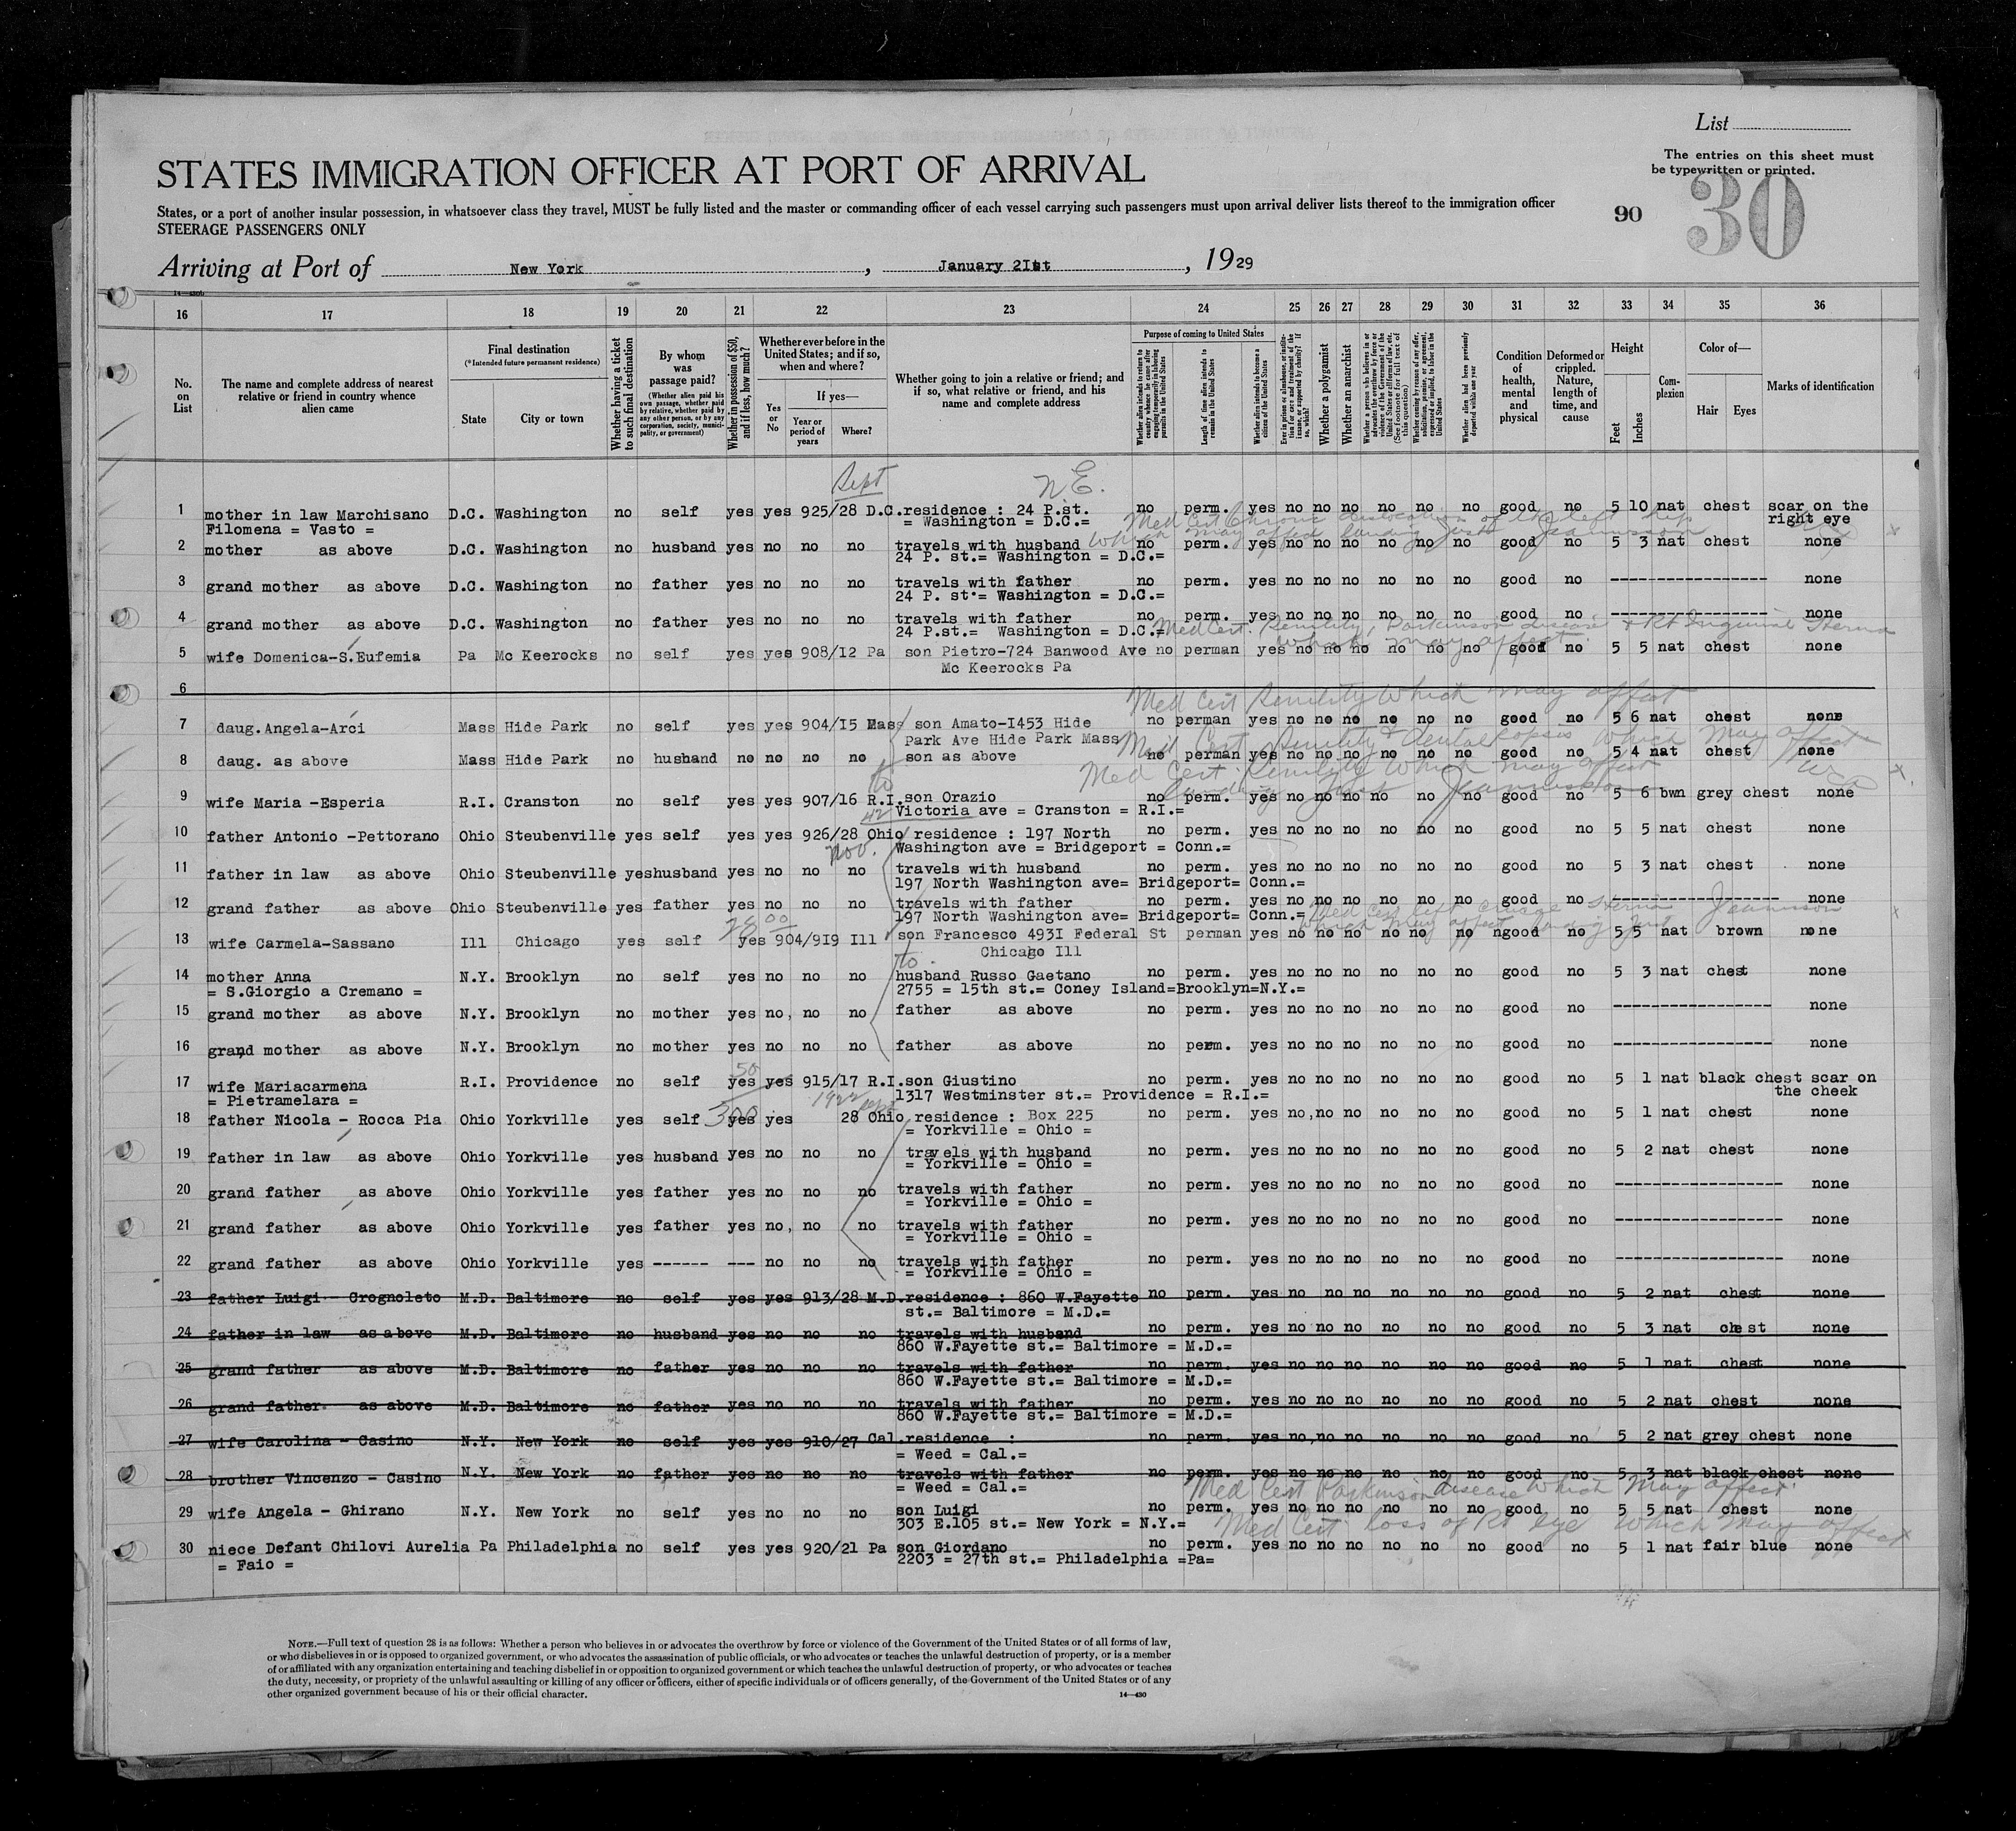 List
The entries on this sheet must
be typewritten or printed.
STATES IMMIGRATION OFFICER AT PORT OF ARRIVAL
90 30
States, or a port of another insular possession, in whatsoever class they travel, MUST be fully listed and the master or commanding officer of each vessel carrying such passengers must upon arrival deliver lists thereof to the immigration officer
STEERAGE PASSENGERS ONLY
Arriving at Port of New York, January 21st, 1929
16 17 18 19 20 21 22 23 24 25 26 27 28 29 30 31 32 33 34 35 36
No. on List
The name and complete address of nearest relative or friend in country whence alien came
Final destination
(*Intended future permanent residence)
State
City or town
Whether having a ticket to such final destination
By whom was passage paid?
(Whether alien paid his own passage, whether paid by relative, whether paid by any other person, or by any corporation, society, municipality, or government)
Whether in possession of $50, and if less, how much?
Whether ever before in the United States; and if so, when and where?
Yes or No
If yes—
Year or period of years
Where?
Whether going to join a relative or friend; and if so, what relative or friend, and his name and complete address
Purpose of coming to United States
Whether alien intends to return to country whence he came after engaging temporarily in laboring pursuits in the United States
Length of time alien intends to remain in the United States
Whether alien intends to become a citizen of the United States
Ever in prison or almshouse, or institution for care and treatment of the insane, or supported by charity? If so, which?
Whether a polygamist
Whether an anarchist
Whether a person who believes in or advocates the overthrow by force or violence of the Government of the United States or all forms of law, etc. (See footnote for full text of this question)
Whether coming by reason of any offer, solicitation, promise, or agreement, expressed or implied, to labor in the United States
Whether alien had been previously deported within one year
Condition of health, mental and physical
Deformed or crippled. Nature, length of time, and cause
Height
Feet
Inches
Complexion
Color of—
Hair Eyes
Marks of identification
Sept N.E.
1 mother in law Marchisano D.C. Washington no self yes yes 925/28 D.C. residence : 24 P.st. no perm. yes no no no no no no good no 5 10 nat chest scar on the
Filomena = Vasto = = Washington = D.C.= right eye
Med Cert Chronic dislocation of the left hip
which may affect landing
2 mother as above D.C. Washington no husband yes no no no travels with husband no perm. yes no no no no no no good no 5 3 nat chest none
24 P. st.= Washington = D.C.=
3 grand mother as above D.C. Washington no father yes no no no travels with father no perm. yes no no no no no no good no ----------------- none
24 P. st.= Washington = D.C.=
4 grand mother as above D.C. Washington no father yes no no no travels with father no perm. yes no no no no no no good no ----------------- none
24 P.st.= Washington = D.C.=
Med Cert. Senility, Parkinson disease & Rt Inguinal Hernia
which may affect
5 wife Domenica-S.Eufemia Pa Mc Keerocks no self yes yes 908/12 Pa son Pietro-724 Banwood Ave no perman yes no no no no no no good no 5 5 nat chest none
Mc Keerocks Pa
6
Med Cert Senility which may affect
7 daug.Angela-Arci Mass Hide Park no self yes yes 904/15 Mass son Amato-I453 Hide no perman yes no no no no no no good no 5 6 nat chest none
Park Ave Hide Park Mass
Med Cert Senility & which may affect
8 daug. as above Mass Hide Park no husband no no no no son as above no perman yes no no no no no no good no 5 4 nat chest none
Med Cert. Senility which may affect
landing
to
9 wife Maria -Esperia R.I. Cranston no self yes yes 907/16 R.I. son Orazio no perm. yes no no no no no no good no 5 6 bwn grey chest none
42 Victoria ave = Cranston = R.I.=
10 father Antonio -Pettorano Ohio Steubenville yes self yes yes 926/28 Ohio residence : 197 North no perm. yes no no no no no no good no 5 5 nat chest none
Nov. Washington ave = Bridgeport = Conn.=
11 father in law as above Ohio Steubenville yes husband yes no no no travels with husband no perm. yes no no no no no no good no 5 3 nat chest none
197 North Washington ave= Bridgeport= Conn.=
12 grand father as above Ohio Steubenville yes father yes no no no travels with father no perm. yes no no no no no no good no ----------------- none
197 North Washington ave= Bridgeport= Conn.=
Med Cert left Hernia
which may affect landing
13 wife Carmela-Sassano Ill Chicago yes self yes 904/9I9 Ill son Francesco 493I Federal St perman yes no no no no no no ngood no 5 5 nat brown none
Chicago Ill
to
14 mother Anna N.Y. Brooklyn no self yes no no no husband Russo Gaetano no perm. yes no no no no no no good no 5 3 nat chest none
= S.Giorgio a Cremano = 2755 = 15th st.= Coney Island=Brooklyn=N.Y.=
15 grand mother as above N.Y. Brooklyn no mother yes no, no no father as above no perm. yes no no no no no no good no ----------------- none
16 grand mother as above N.Y. Brooklyn no mother yes no no no father as above no perm. yes no no no no no no good no ----------------- none
50
17 wife Mariacarmena R.I. Providence no self yes yes 915/17 R.I. son Giustino no perm. yes no no no no no no good no 5 1 nat black chest scar on
= Pietramelara = 1317 Westminster st.= Providence = R.I.= the cheek
300 1922 Sept
18 father Nicola - Rocca Pia Ohio Yorkville yes self yes yes 28 Ohio residence : Box 225 no perm. yes no, no no no no no good no 5 1 nat chest none
= Yorkville = Ohio =
19 father in law as above Ohio Yorkville yes husband yes no no no travels with husband no perm. yes no no no no no no good no 5 2 nat chest none
= Yorkville = Ohio =
20 grand father as above Ohio Yorkville yes father yes no no no travels with father no perm. yes no no no no no no good no ------------------ none
= Yorkville = Ohio =
21 grand father as above Ohio Yorkville yes father yes no, no no travels with father no perm. yes no no no no no no good no ------------------ none
= Yorkville = Ohio =
22 grand father as above Ohio Yorkville yes ------ --- no no no travels with father no perm. yes no no no no no no good no ------------------ none
= Yorkville = Ohio =
23 father Luigi - Grognoleto M.D. Baltimore no self yes yes 913/28 M.D. residence : 860 W.Fayette no perm. yes no no no no no no good no 5 2 nat chest none
st.= Baltimore = M.D.=
24 father in law as above M.D. Baltimore no husband yes no no no travels with husband no perm. yes no no no no no no good no 5 3 nat chest none
860 W.Fayette st.= Baltimore = M.D.=
25 grand father as above M.D. Baltimore no father yes no no no travels with father no perm. yes no no no no no no good no 5 1 nat chest none
860 W.Fayette st.= Baltimore = M.D.=
26 grand father as above M.D. Baltimore no father yes no no no travels with father no perm. yes no no no no no no good no 5 2 nat chest none
860 W.Fayette st.= Baltimore = M.D.=
27 wife Carolina - Casino N.Y. New York no self yes yes 910/27 Cal. residence : no perm. yes no, no no no no no good no 5 2 nat grey chest none
= Weed = Cal.=
28 brother Vincenzo - Casino N.Y. New York no father yes no no no travels with father no perm. yes no no no no no no good no 5 3 nat black chest none
= Weed = Cal.=
Med Cert Parkinson disease which may affect
29 wife Angela - Ghirano N.Y. New York no self yes no no no son Luigi no perm. yes no no no no no no good no 5 5 nat chest none
303 E.105 st.= New York = N.Y.=
Med Cert. loss of Rt eye which may affect
30 niece Defant Chilovi Aurelia Pa Philadelphia no self yes yes 920/21 Pa son Giordano no perm. yes no no no no no no good no 5 1 nat fair blue none
= Faio = 2203 = 27th st.= Philadelphia =Pa=
NOTE.—Full text of question 28 is as follows: Whether a person who believes in or advocates the overthrow by force or violence of the Government of the United States or of all forms of law,
or who disbelieves in or is opposed to organized government, or who advocates the assassination of public officials, or who advocates or teaches the unlawful destruction of property, or is a member
of or affiliated with any organization entertaining and teaching disbelief in or opposition to organized government or which teaches the unlawful destruction of property, or who advocates or teaches
the duty, necessity, or propriety of the unlawful assaulting or killing of any officer or officers, either of specific individuals or of officers generally, of the Government of the United States or of any
other organized government because of his or their official character.
14—430